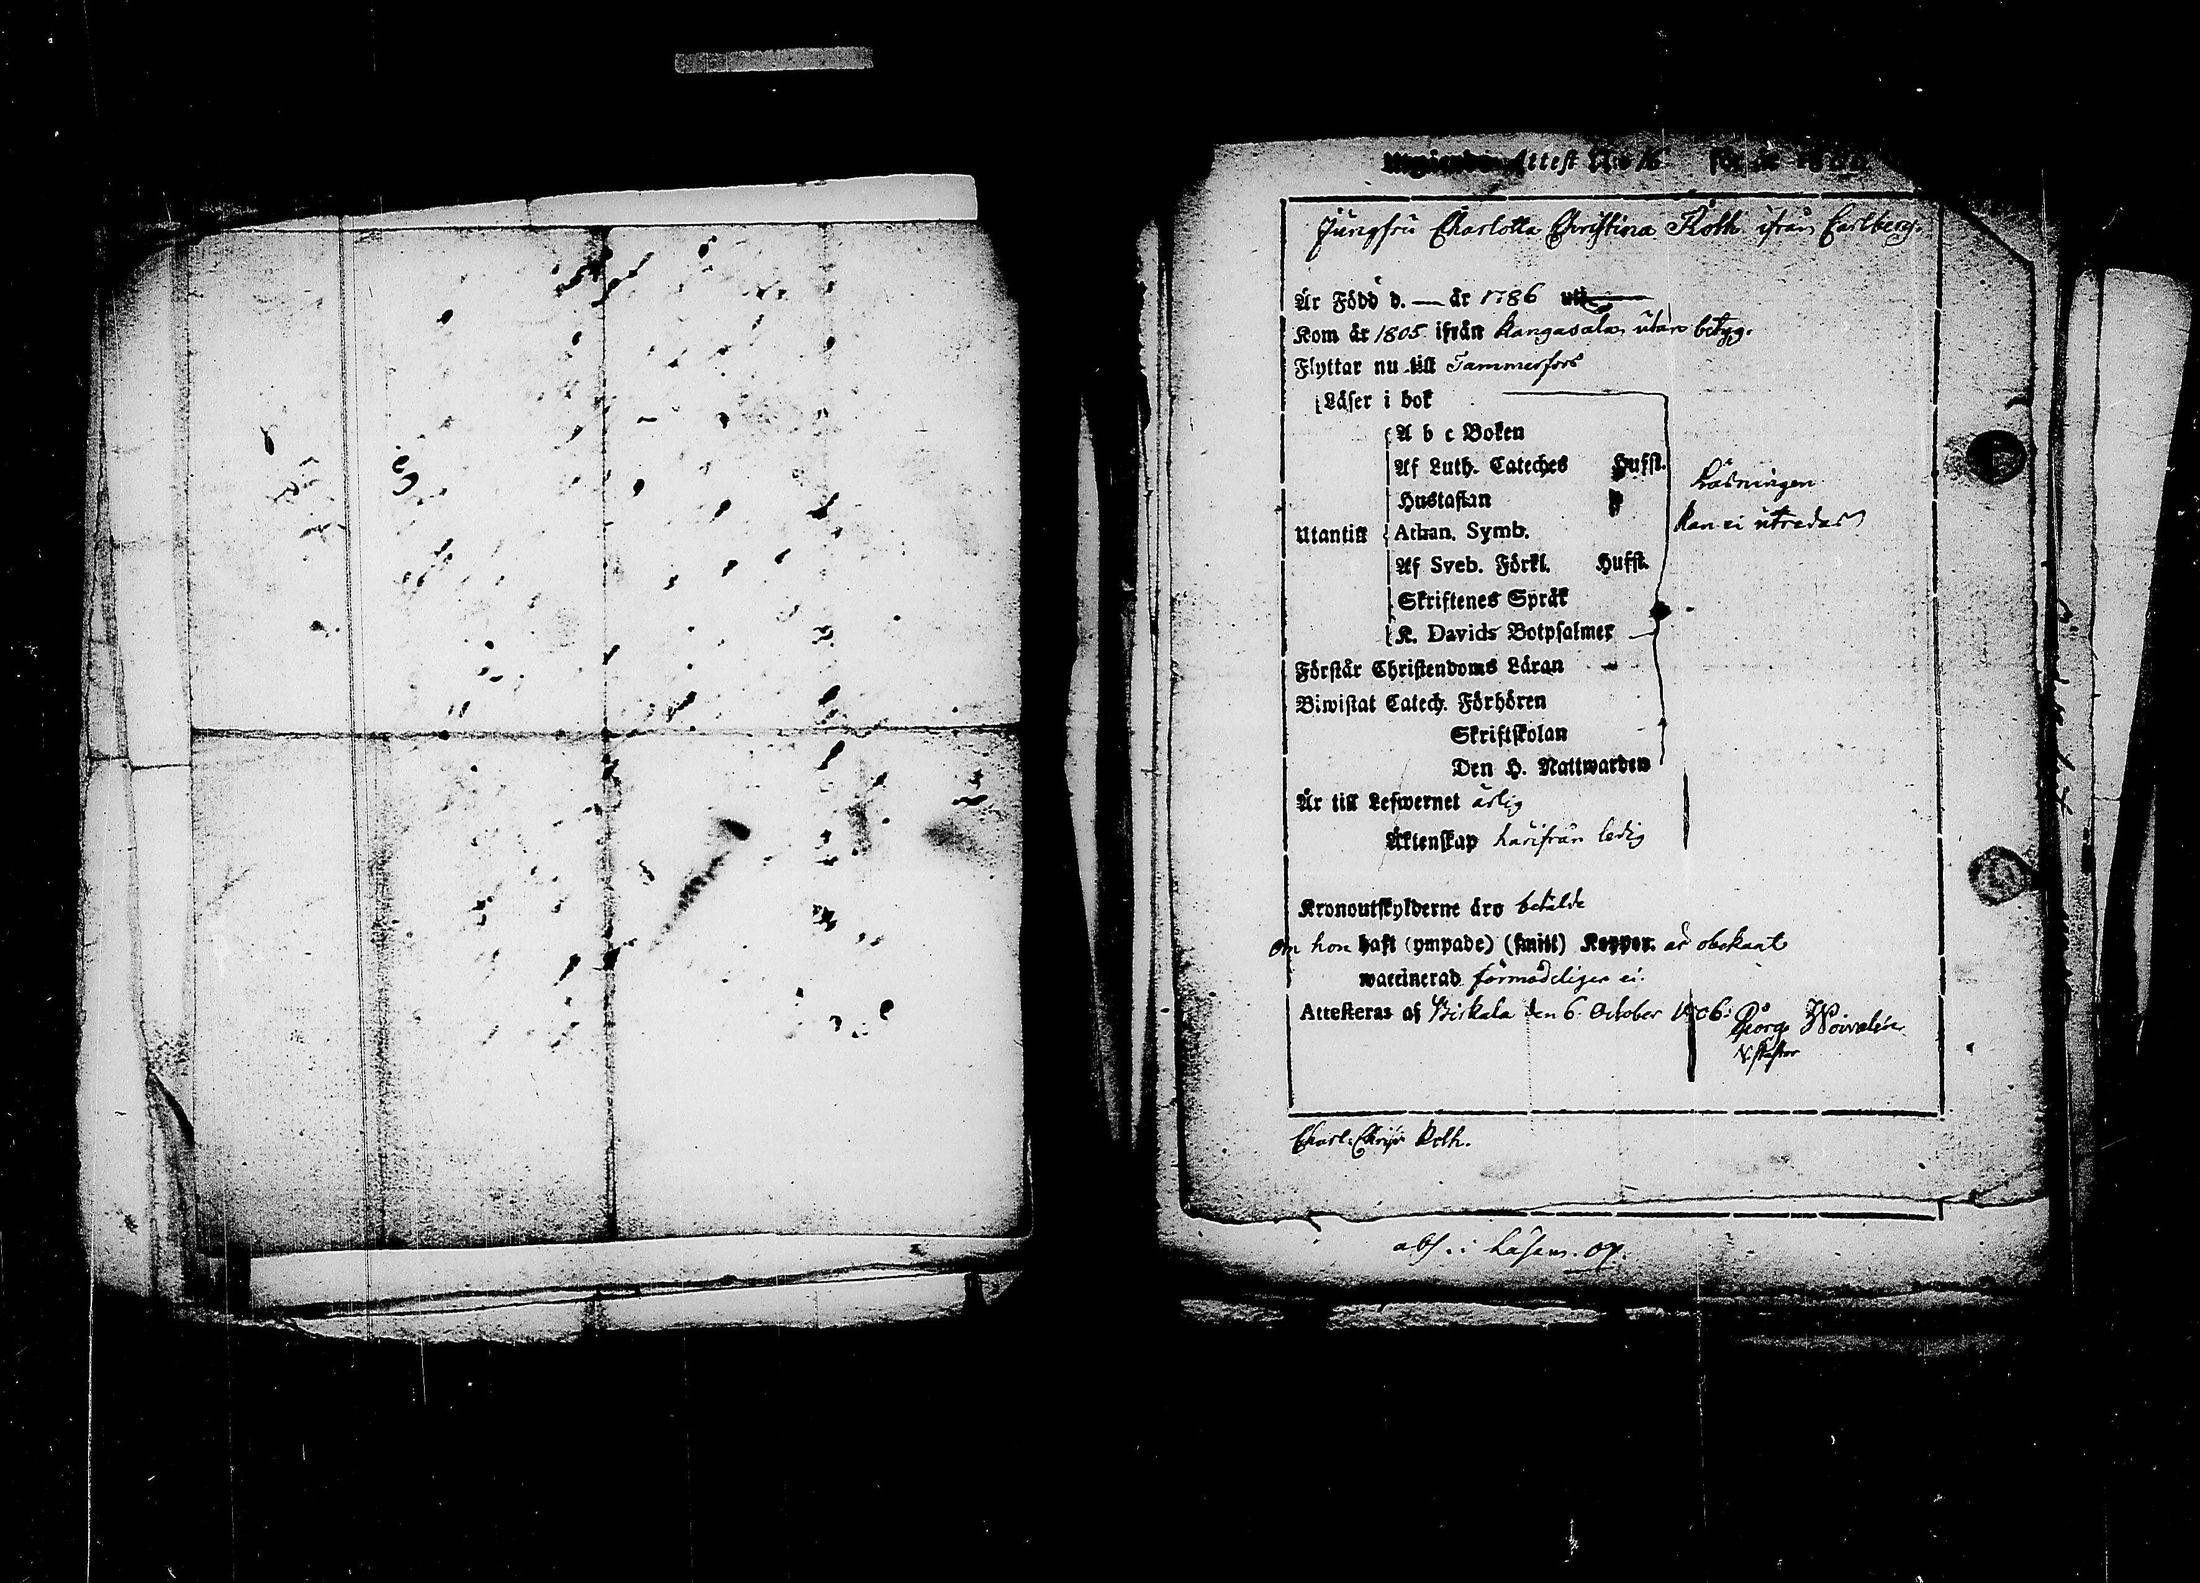 Attest N:o 16 för år 1806
Jungfru Charlotta Christina Roth ifrån Carlberg.
Är Född d. — år 1786 uti
Kom år 1805 ifrån Kangasala utan betyg.
Flyttar nu till Tammerfors
Läser i bok
A b c Boken
Af Luth. Cateches Hufst.
Hustaflan
Läsningen
kan ei utredas
Utantill Athan. Symb.
Af Sveb. Förkl. Hufst.
Skriftenes Språk
K. Davids Botpsalmer
Förstår Christendoms Läran
Biwistat Catech. Förhören
Skriftskolan
Den H. Nattwarden
Är till Lefwernet ärlig
Äktenskap härifrån ledig
Kronoutskylderne äro betalde
om hon haft (ympade) (smitt) Koppor. är obekant
waccinerad förmodeligen ei.
Attesteras af Birkala den 6. October 1806: Georg Woivalin
V. Pastor
Charl: Christ: Roth.